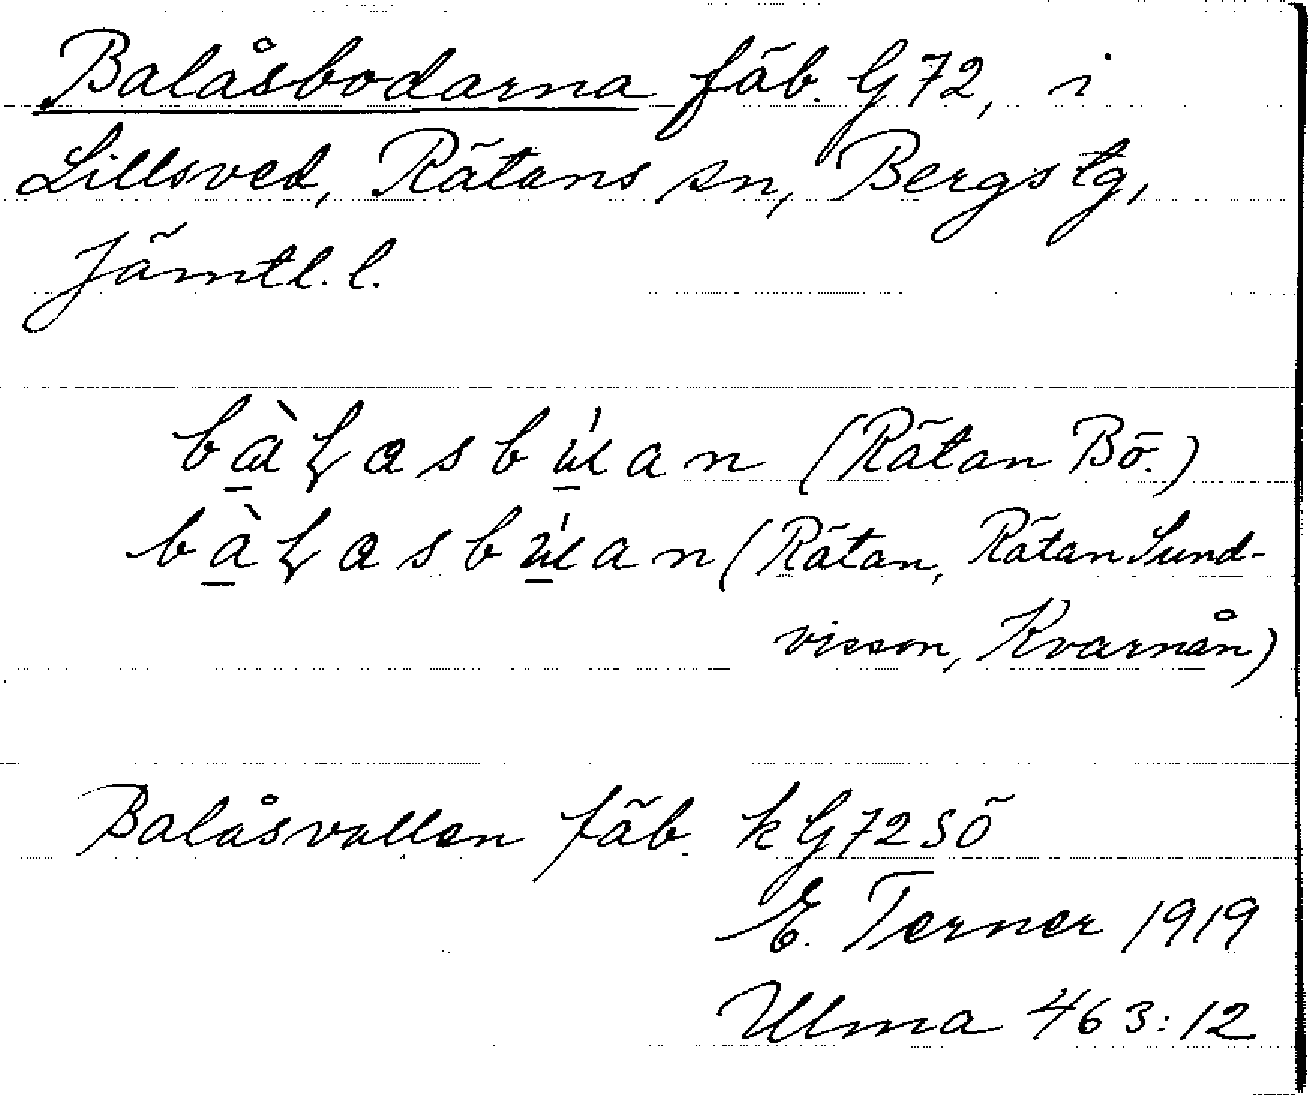 Balåsbodarna fäb. G72, i
Lillsved, Rätans sn, Bergs tg,
Jämtl. l.
bàɽasbúan (Rätan Bö.)
bàɽasbúan (Rätan, Rätan Sund-
visson, Kvarnån)
Balåsvallen fäb. kG72SÖ
E. Terner 1919
Ulma 463:12